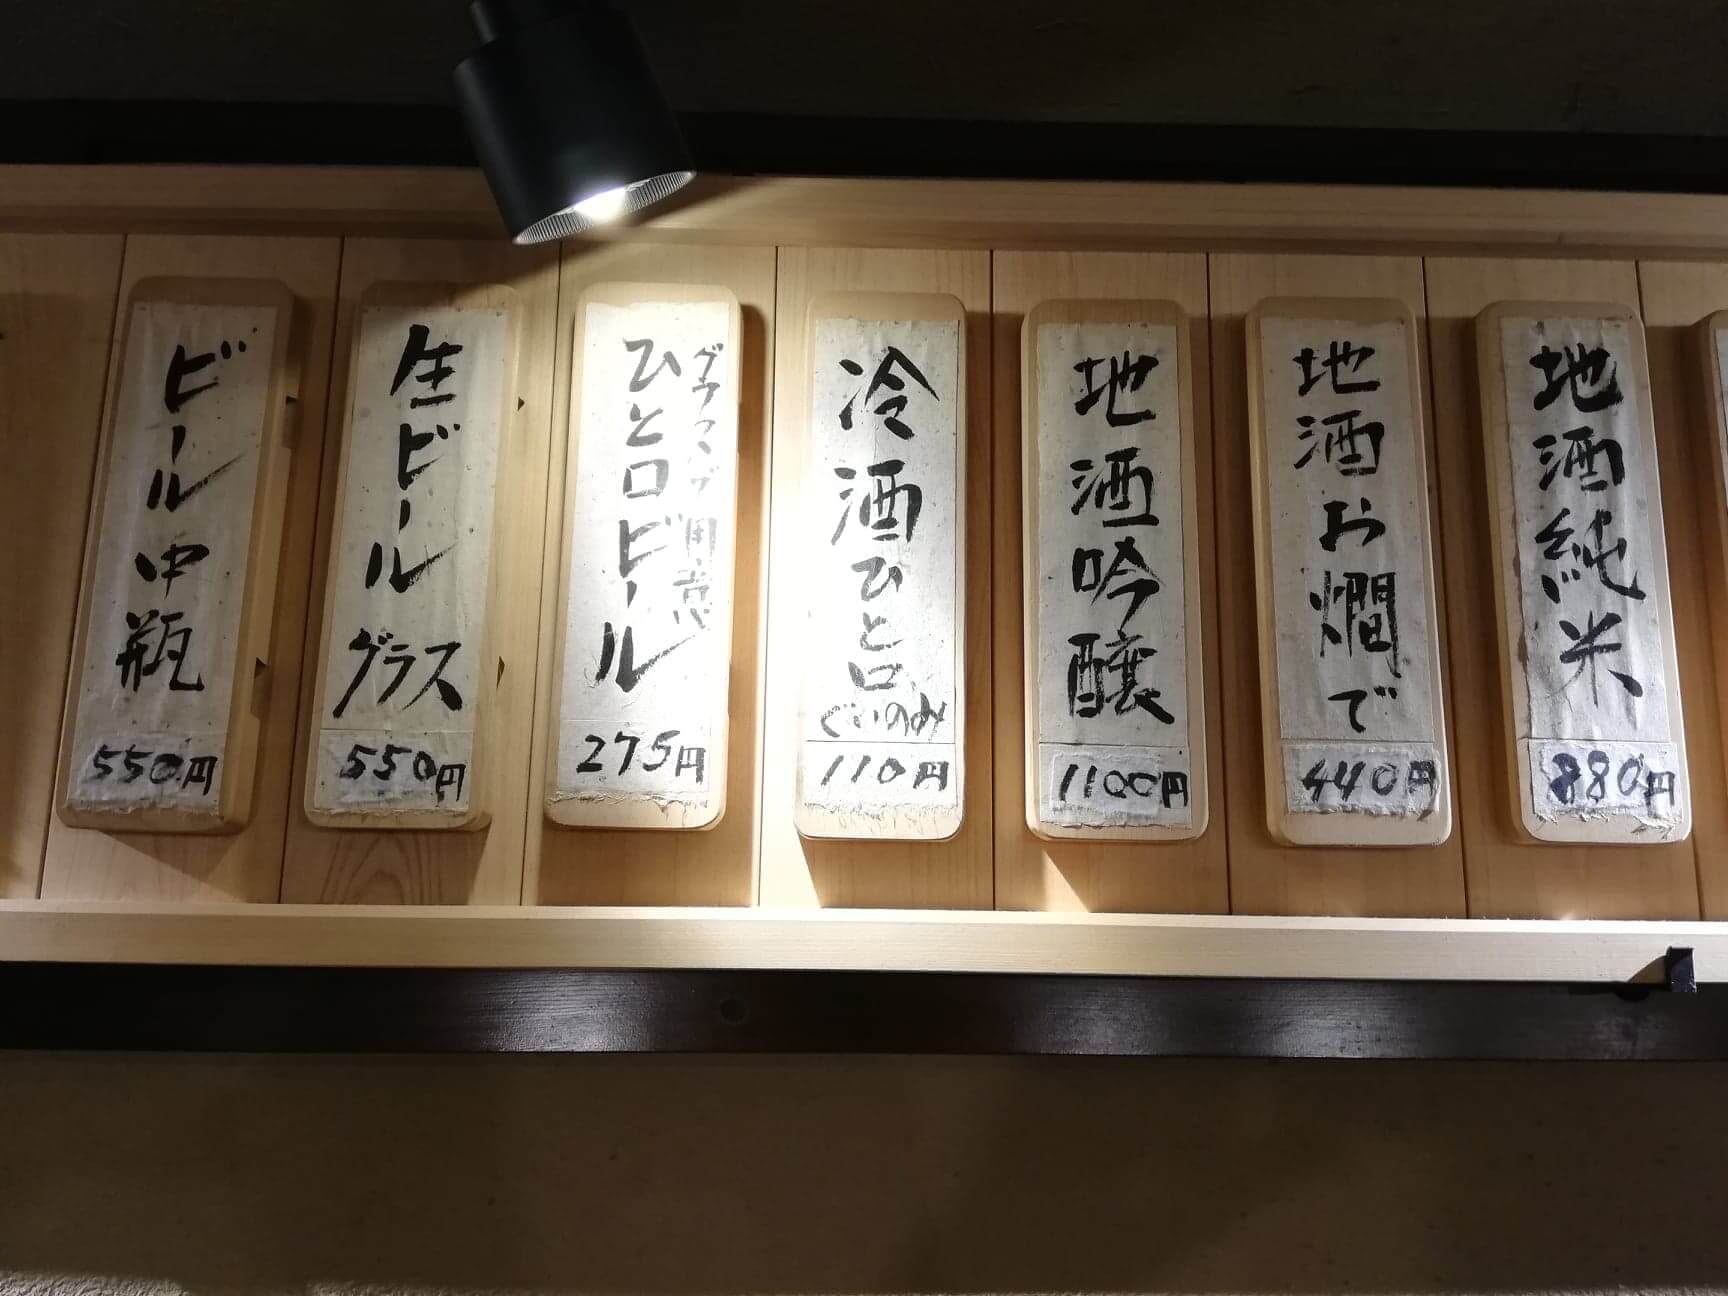 地酒純米
880円
地酒お燗で
440円
地酒吟醸
1100円
冷酒ひと口
ぐいのみ
110円
ひと口ビール
275円
生ビール
グラス
550円
ビール中瓶
550円